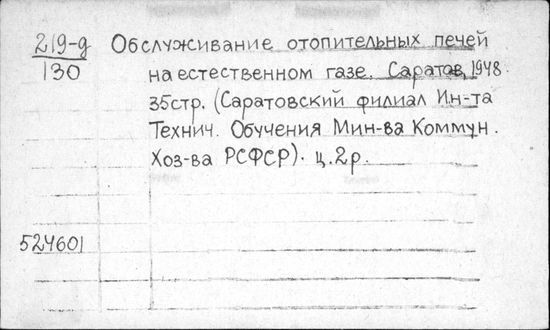 219-д Обслуживание отопительных печей
130 на естественном газе. Саратов, 1948.
35стр. (Саратовский филиал Ин-та
Технич. Обучения Мин-ва Коммун.
Хоз-ва РСФСР). ц.2р.
524601